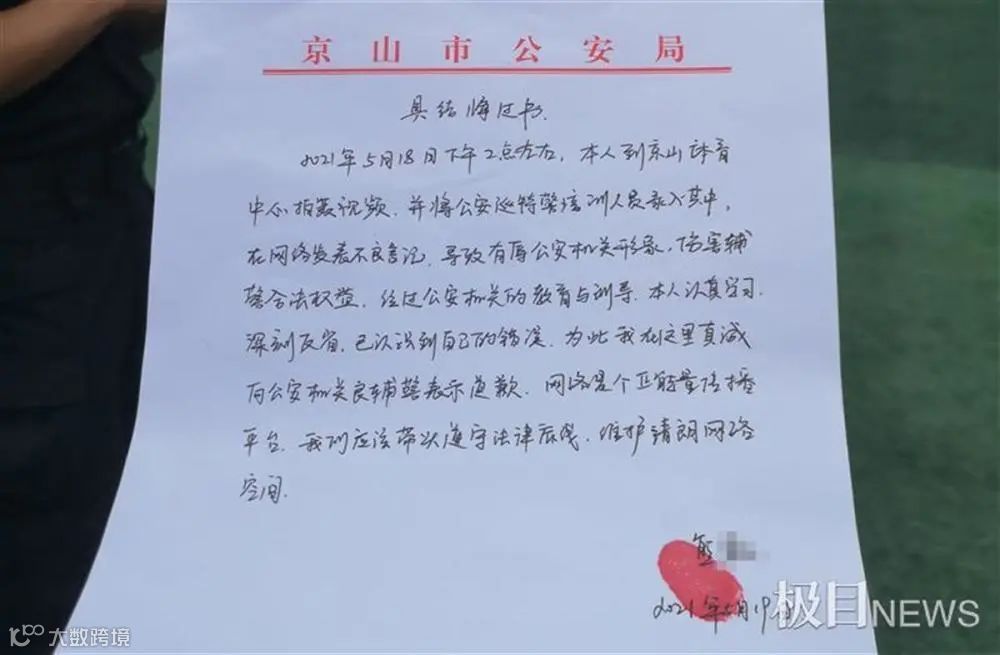 京山市公安局
具结悔过书
2021年5月18日下午2点左右，本人到京山体育
中心拍摄视频，并将公安巡特警培训人员录入其中，
在网络发表不良言论，导致有辱公安机关形象，伤害辅
警合法权益，经过公安机关的教育与训导，本人认真学习
深刻反省，已认识到自己的错误，为此我在这里真诚
向公安机关及辅警表示道歉，网络是个正能量传播
平台，我们应该带头遵守法律底线，维护清朗网络
空间。
熊
2021年5月19日
极目NEWS
大数跨境